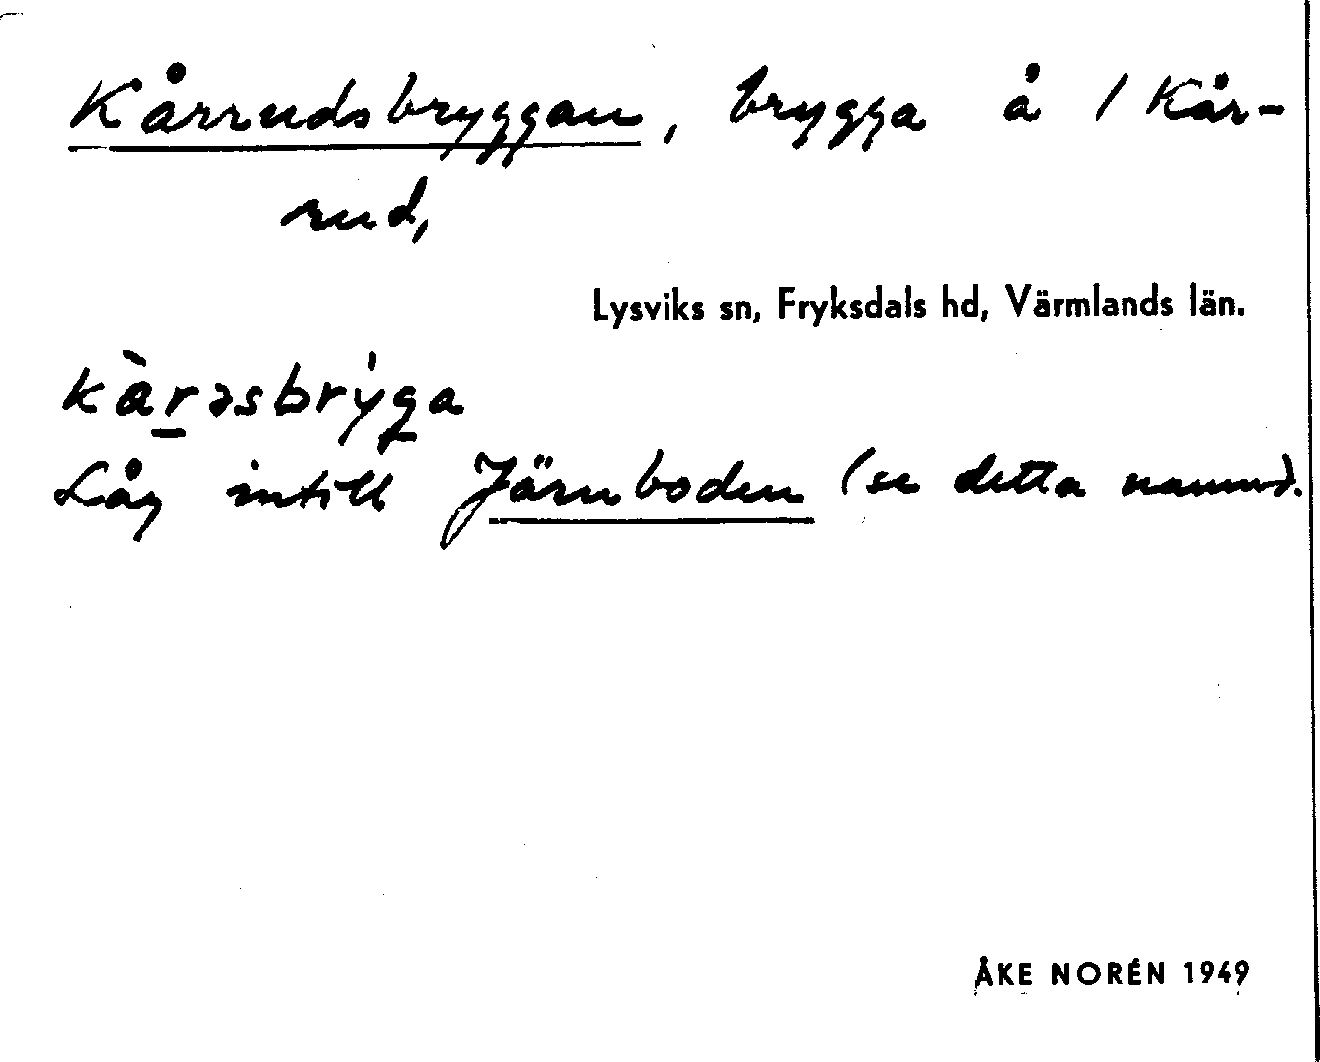 Kårrudsbryggan, brygga å 1 Kår-
rud,
Lysviks sn, Fryksdals hd, Värmlands län.
kàrəsbry̍ga
Låg intill Järnboden (se detta namn).
ÅKE NORÉN 1949